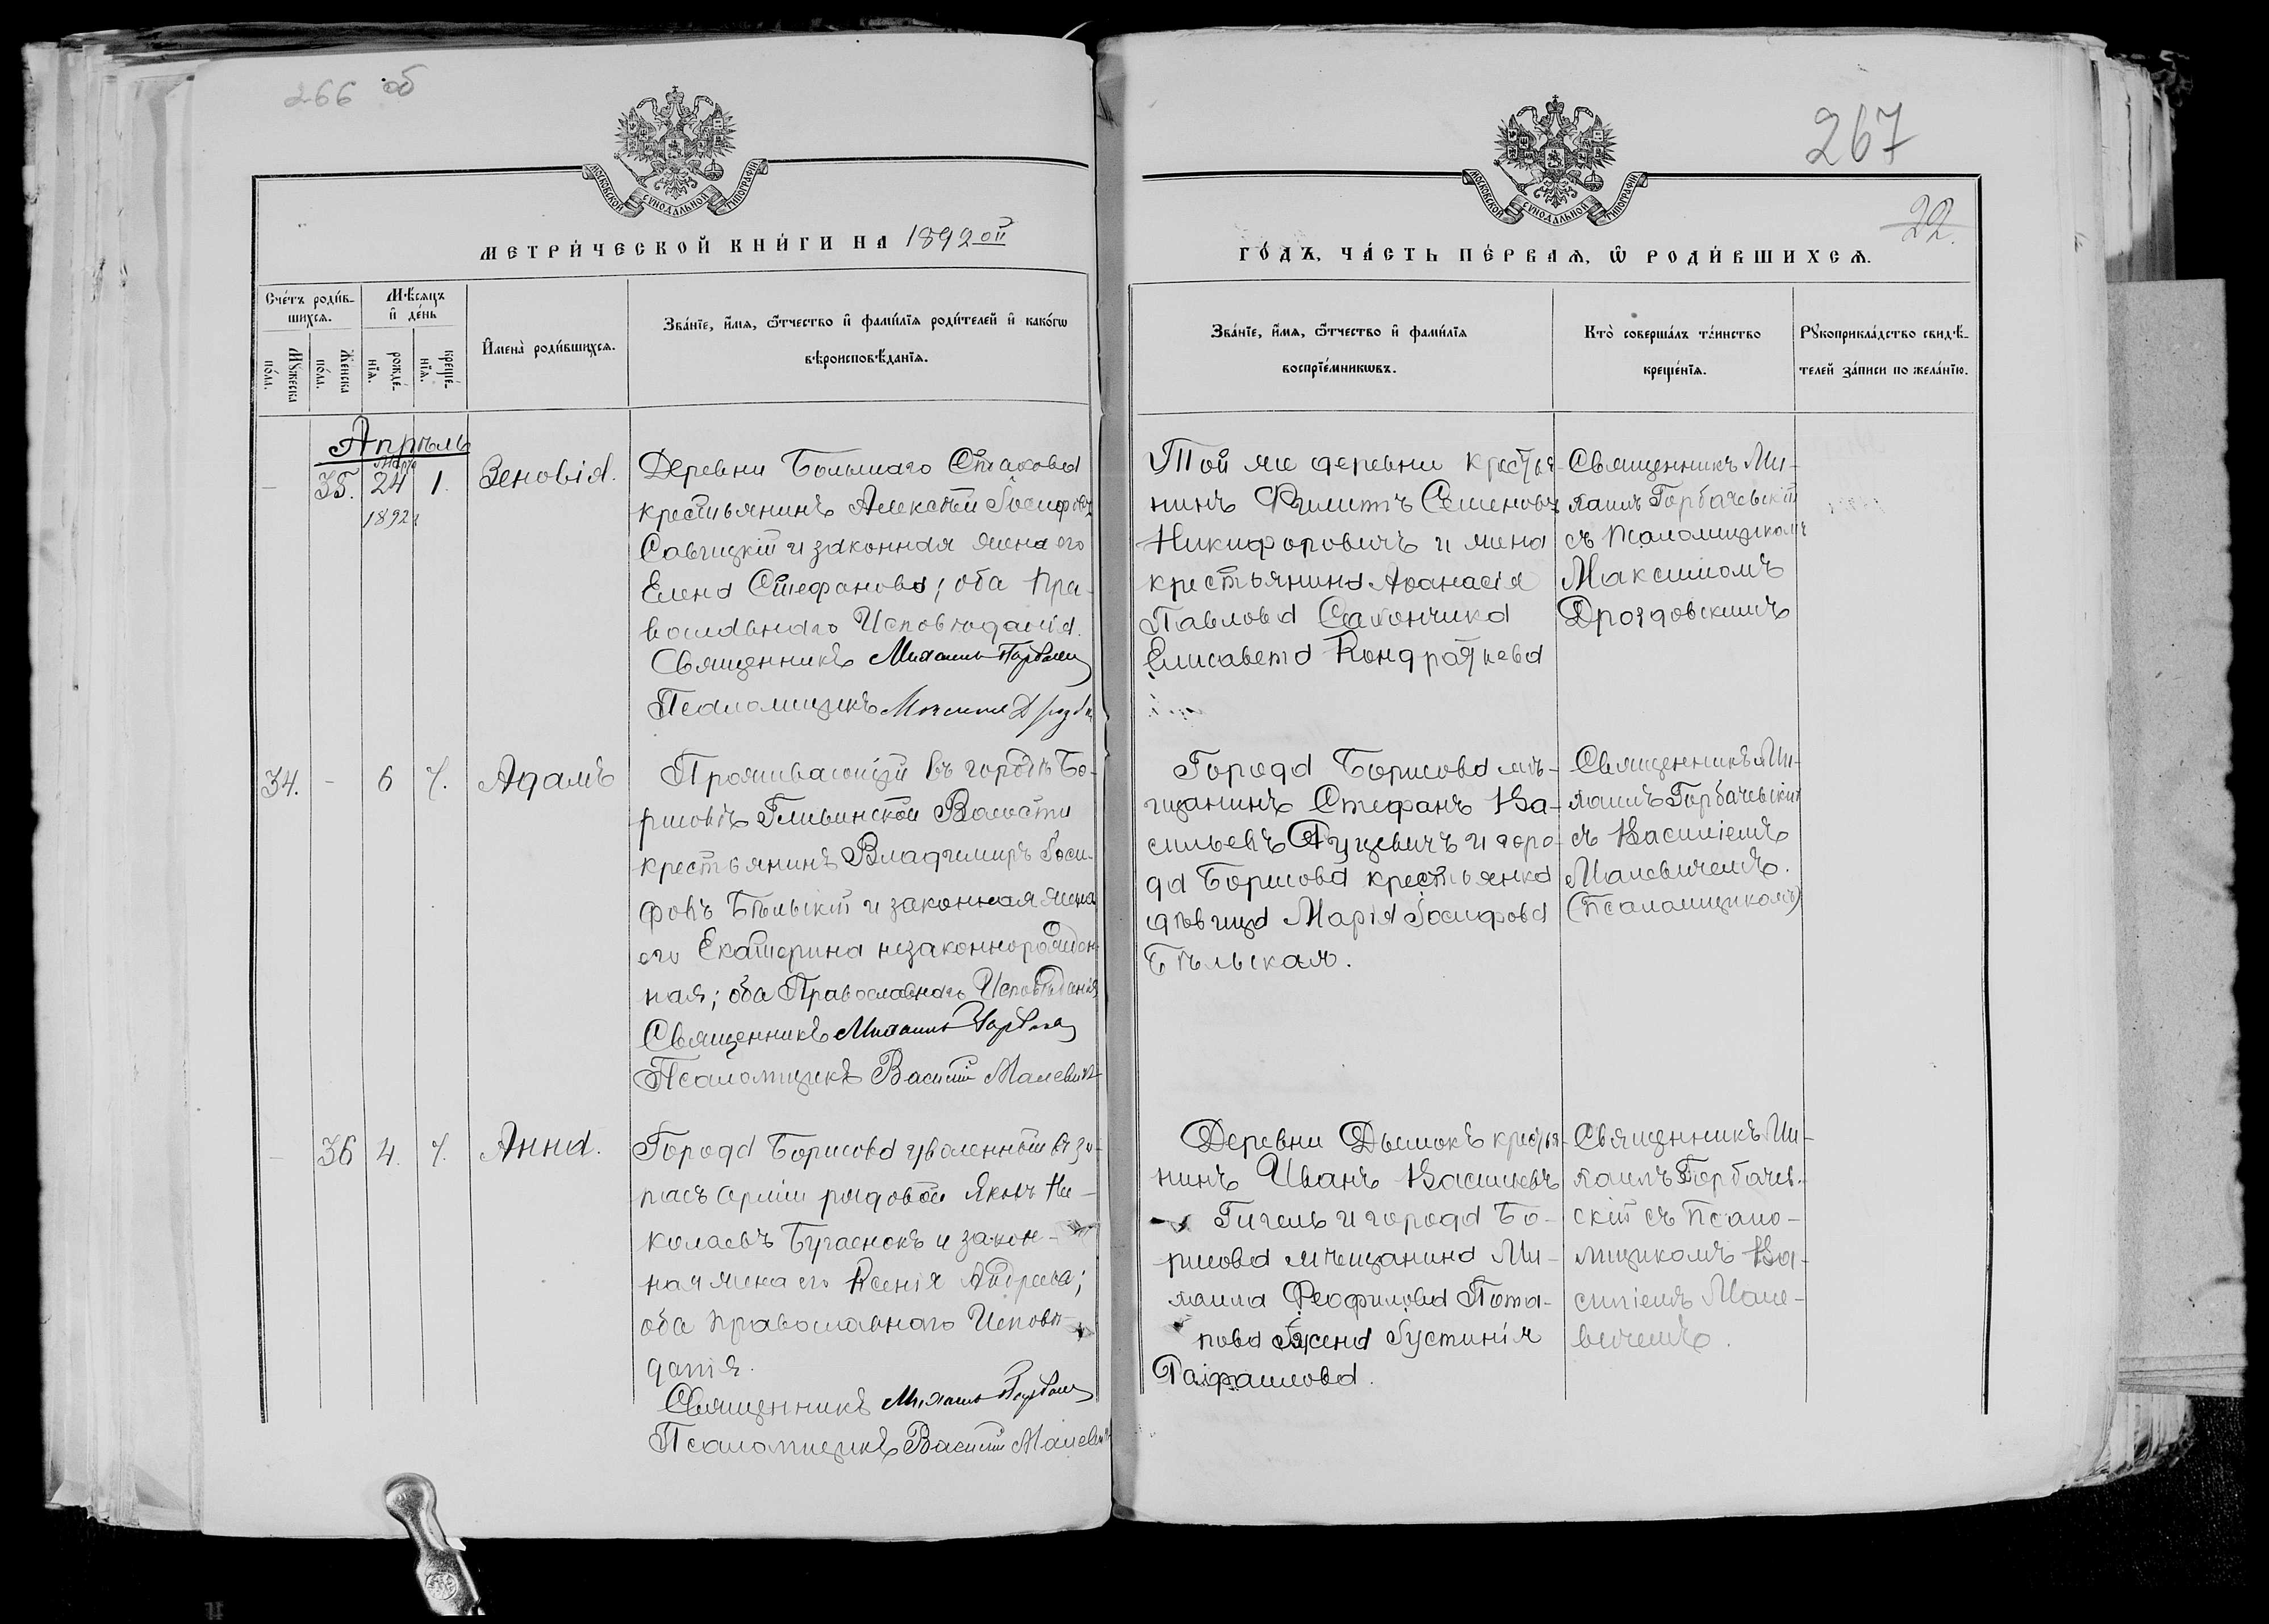 266 об
МОСКОВСКОЙ СѴНОДАЛЬНОЙ ТИПОГРАФІИ
МЕТРИ́ЧЕСКОЙ КНИ́ГИ НА 1892ой
Сче́тъ роди́в-
шихсѧ.
Мѣ́сѧцъ
и҆ де́нь
Мꙋ́жеска
по́ла.
Же́нска
по́ла.
рожде́-
нїѧ.
креще́-
нїѧ.
И҆мена̀ роди́вшихсѧ.
Зва́нїе, и҆́мѧ, ѻ҆́тчество и҆ фами́лїѧ роди́телей и҆ како́гѡ
вѣроисповѣ́данїѧ.
Апрѣль
— 35. Марта 24 1892г 1. Зеновія.
Деревни Большаго Стахова
крестьянинъ Алексѣй Іосифовъ
Савицкій и законная жена его
Елена Стефанова; оба Пра-
вославнаго Исповѣданія.
Священникъ Михаилъ Горбачев
Псаломщикъ Максимъ Дроздов
34. — 6 7. Адамъ
Проживающій въ городѣ Бо-
рисовѣ Гливинской Волости
крестьянинъ Владимиръ Іоси-
фовъ Бѣльскій и законная жена
его Екатерина незаконнорожден-
ная; оба Православнаго Исповѣданія
Священникъ Михаилъ Горбачев
Псаломщикъ Василій Малевич
— 36 4. 7. Анна.
Города Борисова уволенный въ за-
пасъ арміи рядовой Яковъ Ни-
колаевъ Бугаенокъ и закон-
ная жена его Ксенія Андреева;
оба Православнаго Исповѣ-
данія.
Священникъ Михаилъ Горбачев
Псаломщикъ Василій Малевич
267
22.
МОСКОВСКОЙ СѴНОДАЛЬНОЙ ТИПОГРАФІИ
ГО́ДЪ, ЧА́СТЬ ПЕ́РВАѦ, Ѽ РОДИ́ВШИХСѦ.
Зва́нїе, и҆́мѧ, ѻ҆́тчество и҆ фами́лїѧ
воспрїе́мникѡвъ.
Кто̀ соверша́лъ та́инство
креще́нїѧ.
Рꙋкоприкла́дство свидѣ́-
телей за́писи по жела́нїю.
Той же деревни крестья-
нинъ Филиппъ Семеновъ
Никифоровичъ и жена
крестьянина Аѳанасія
Павлова Сахончика
Елисавета Кондратьева
Священникъ Ми-
хаилъ Горбачевскій
съ Псаломщикомъ
Максимомъ
Дроздовскимъ
Города Борисова мѣ-
щанинъ Стефанъ Ва-
сильевъ Луцевичъ и горо-
да Борисова крестьянка
дѣвица Марія Іосифова
Бѣльская.
Священникъ Ми-
хаилъ Горбачевскій
съ Василіемъ
Малевичемъ.
(Псаломщикомъ)
Деревни Дымокъ крестья-
нинъ Иванъ Васильевъ
Гигель и города Бо-
рисова мѣщанина Ми-
хаила Феофилова Пота-
пова жена Іустинія
Раифаилова.
Священникъ Ми-
хаилъ Горбачев-
скій съ Псало-
мщикомъ Ва-
силіемъ Мале-
вичемъ.